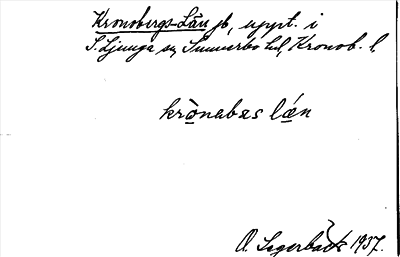 Kronobergs Län jb, uppt. i
S. Ljunga sn, Sunnerbo hd, Kronob. l
krònabæs lǽn
O. Sagerbäck 1937.